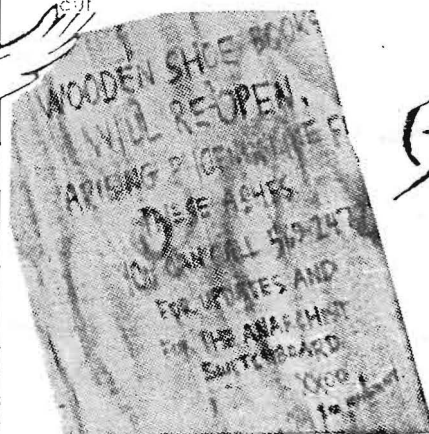 cut
WOODEN SHOE BOOKS
WILL RE-OPEN,
ARISING PHOENIX-LIKE
THESE ASHES
YOU CAN CALL 569-247
FOR UPDATES AND
FOR THE ANARCHIST
SWITCHBOARD
XXOO